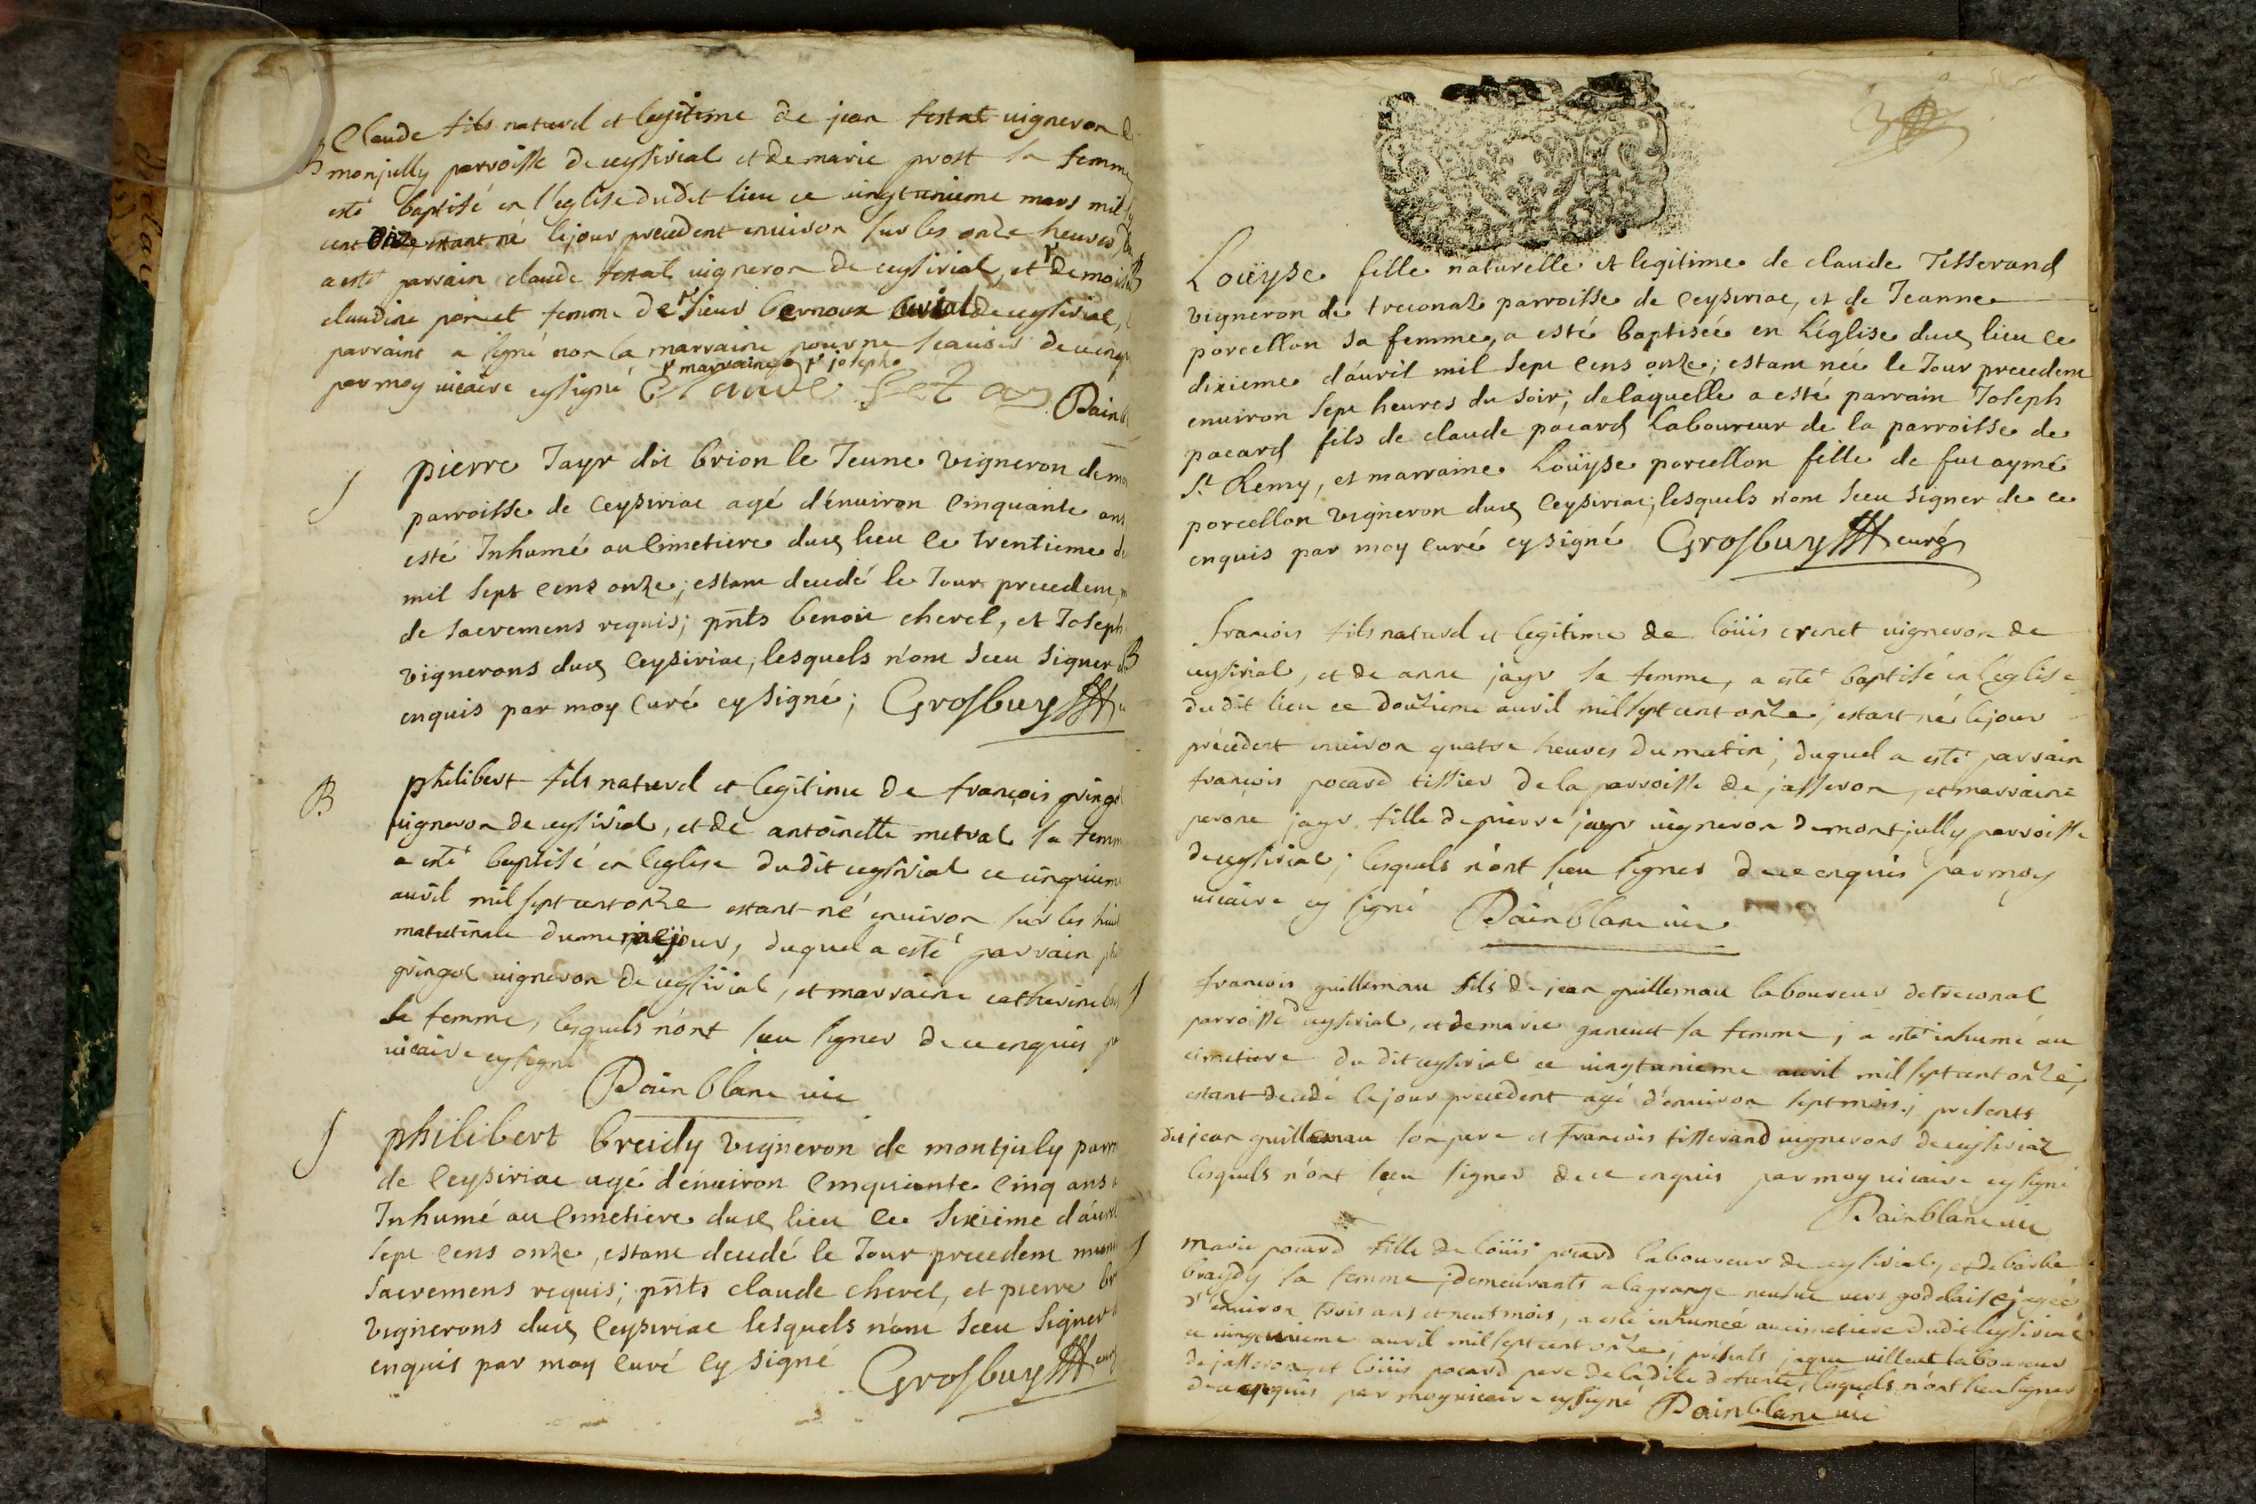 Claude fils naturel et legitime de jean festal vigneron de
B monjully parroisse de ceysirial et de marie prost sa femme
esté baptisé en l'eglise dudit lieu ce vingtunieme mars mil
cent onze, etant né le jour precedent enuiron sur les onze heures
a esté parrain claude festal vigneron de ceysirial, et demoi
claudine femme de sieur bernoux de ceysirial,
parraint a signé non la marraine pour ne scauoir de ce enq
marraine joseph
par moy uicaire cy signé Claude
Pain
J pierre Jayr dit brion le Jeune vigneron dem
parroisse de Ceysiriac agé d'enuiron Cinquante ans
esté Inhumé au Cimetiere dud lieu ce trentieme d
mil Sept Cens onze; estant decedé le Jour precedent,
de sacremens requis; pnts benoit cherel, et Joseph
vignerons dud Ceysiriac, lesquels n'ont sceu signer
enquis par moy Curé cy signé; Grosbuy
B philibert fils naturel et legitime de françois gringo
uigneron de ceysirial, et de antoinette metral sa femm
a esté baptisé en l'eglise dudit ceysirial ce cinquieme
auril mil sept cent onze estant né enuiron sur les hui
matutinale du meme jour, duquel a esté parrain phi
gringo uigneron de ceysirial, et marraine catherine
sa femme, lesquels n'ont sceu signer de ce enquis p
uicaire cy signé
Painblanc uic
J philibert breidy vigneron de montjuly parr
de Ceysiriac agé d'enuiron Cinquante Cinq ans
Inhumé au Cimetiere dud lieu ce Sixieme d'auril
Sept Cens onze, estant decedé le Jour precedent muni
Sacremens requis; pnts claude cherel, et pierre br
vignerons dud Ceysiriac lesquels n'ont sceu signer
enquis par moy curé cy signé Grosbuy curé
B Loüyse fille naturelle et legitime de claude Tisserand
vigneron de treconas parroisse de Ceysiriac, et de Jeanne
porcellon sa femme, a esté baptisée en L'église dud lieu ce
dixieme d'auril mil Sept Cens onze; estant née le Jour precedent
enuiron Sept heures du soir; de laquelle a esté parrain Joseph
pacard fils de claude pacard Laboureur de la parroisse de
St Remy, et marraine Loüyse porcellon fille de fut aymé
porcellon vigneron dud Ceysiriac; lesquels n'ont sceu signer de ce
enquis par moy curé cy signé Grosbuy curé
B francois fils naturel et legitime de loüis crenet uigneron de
ceysirial, et de anne jayr sa femme, a esté baptisé en l'eglise
dudit lieu ce douzieme auril mil sept cent onze; estant né le jour
précedent enuiron quatre heures du matin; duquel a esté parrain
françois pocard tissier de la parroisse de jasseron, et marraine
perone jayr fille de pierre jayr uigneron de montjully parroisse
de ceysirial; lesquels n'ont sceu signer de ce enquis par moy
uicaire cy signé Painblanc uic
J francois guillemau fils de jean guillemau laboureur de treconal
parroisse de ceysirial, et de marie ganeuet sa femme; a esté inhumé au
cimetiere du dit ceysirial ce uingtunieme auril mil sept cent onze,
estant decedé le jour precedent agé d'enuiron sept mois; presents
du jean guillemau son pere et francois tisserand uignerons de ceysirial
lesquels n'ont sceu signer de ce enquis par moy uicaire cy signé
Painblanc uic
J Marie pocard fille de loüis pocard laboureur de ceysirial, et de barbe
braydy sa femme; demeurants a la grange neufue uers agée
d'enuiron trois ans et neuf mois, a esté inhumée au cimetiere dudit ceysirial
ce uingtunieme auril mil sept cent onze, présents laboureur
de jasseron, et loüis pocard pere de la dite defunte, lesquels n'ont sceu signer
de ce enquis par moy uicaire cy signé Painblanc uic